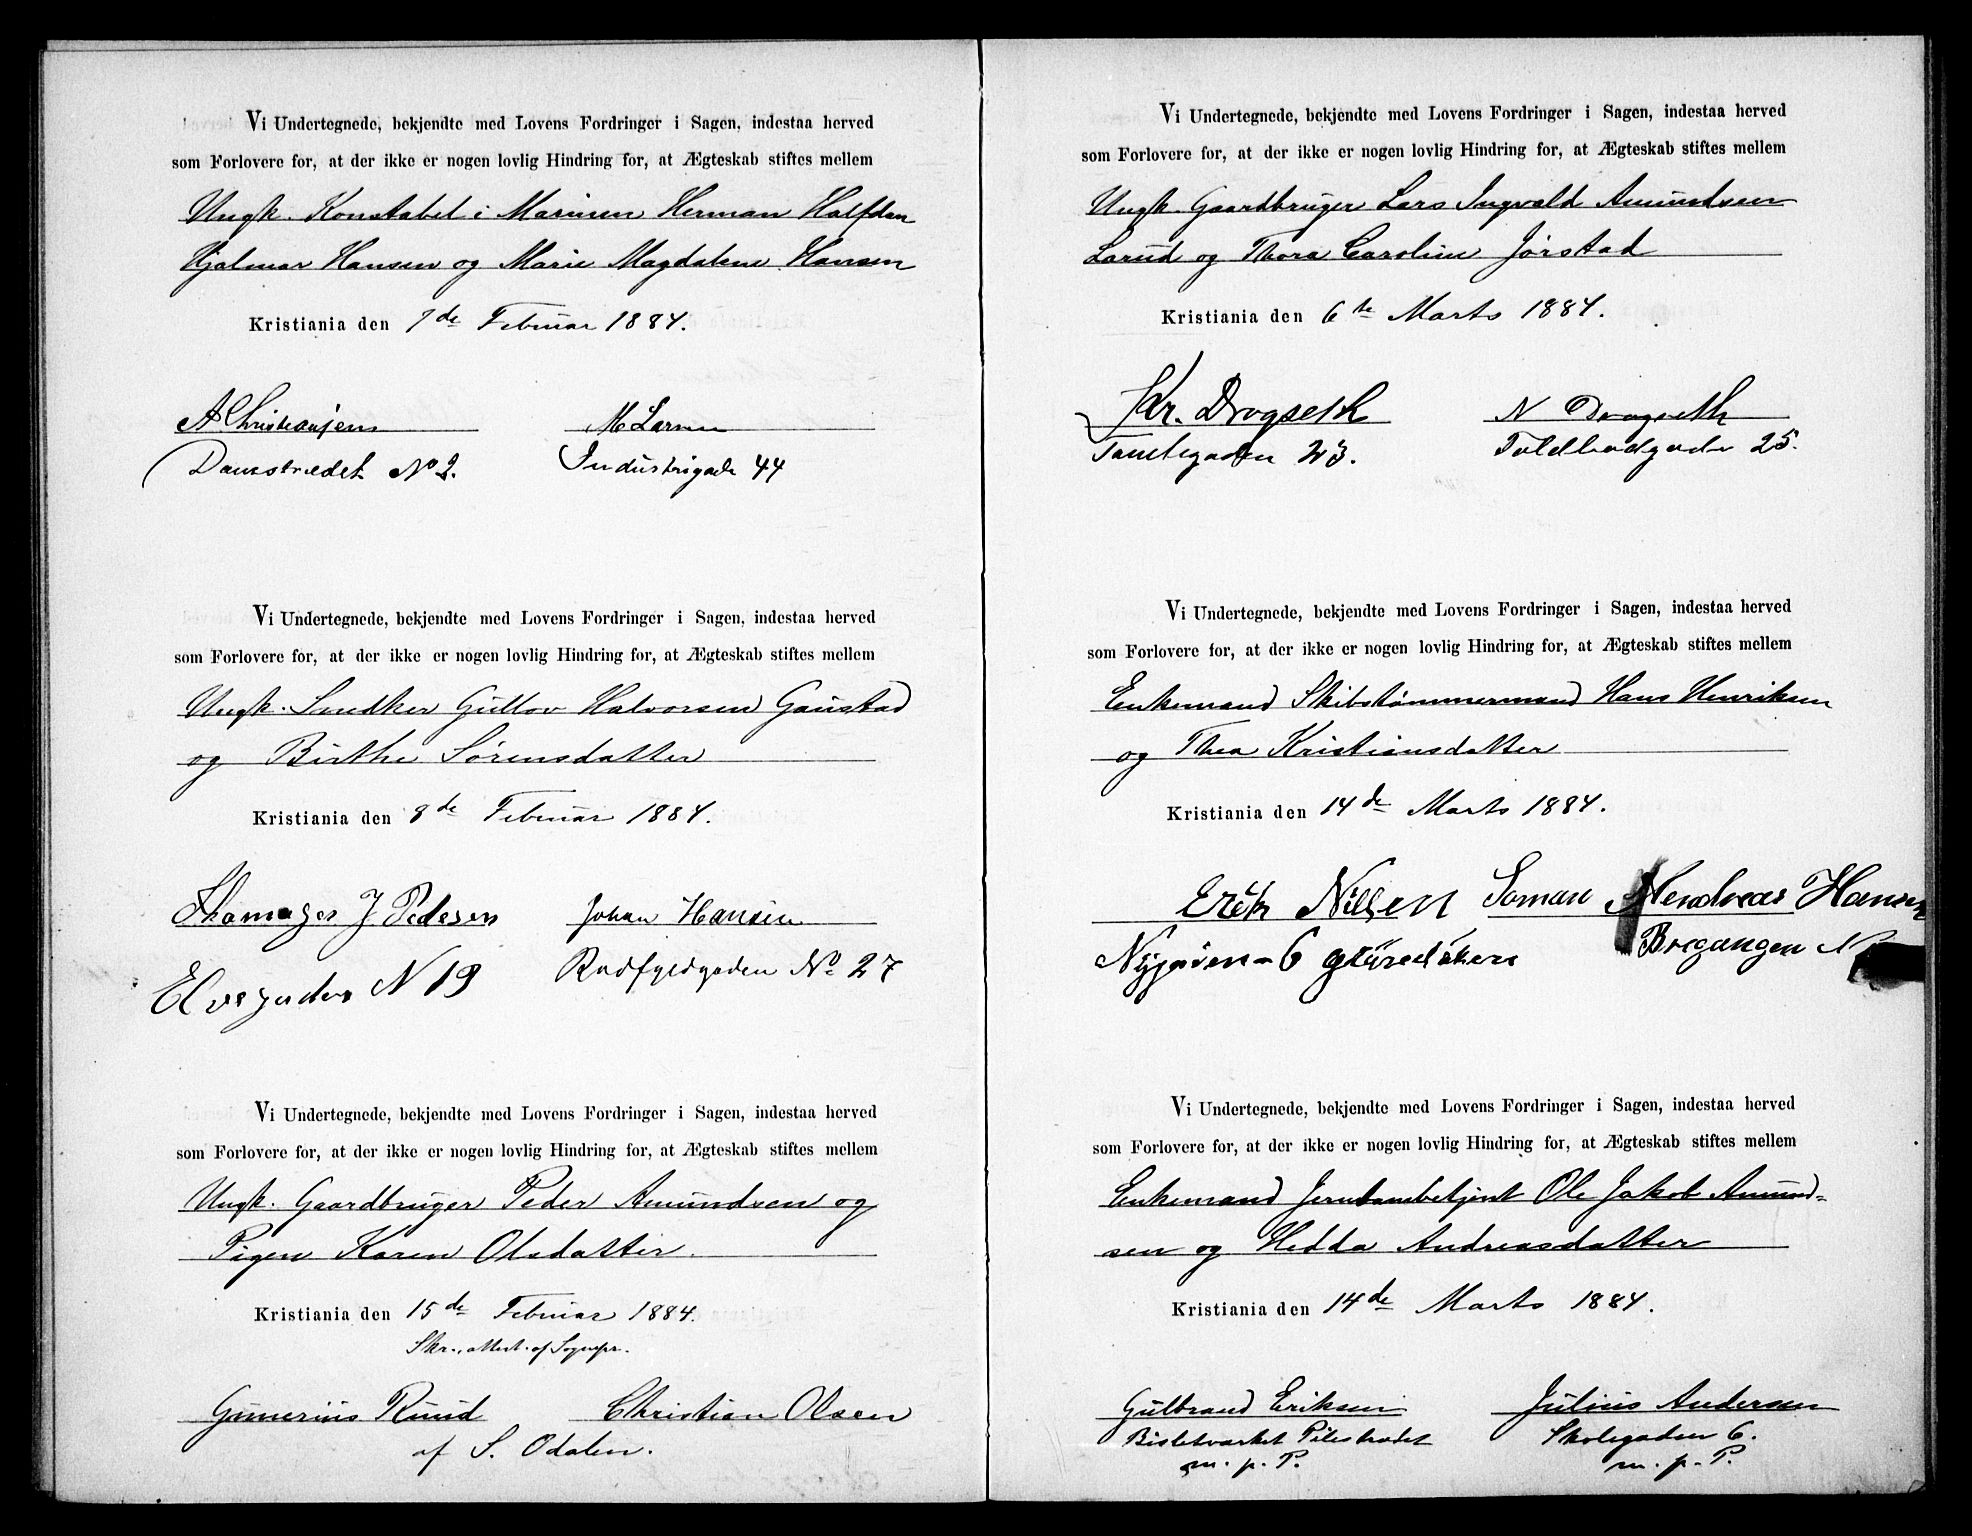 Vi Undertegnede, bekjendte med Lovens Fordringer i Sagen, indestaa herved
som Forlovere for, at der ikke er nogen lovlig Hindring for, at Ægteskab stiftes mellem
Ungk. Konstabel i Marinen Herman Halfdan
Hjalmar Hansen og Marie Magdalene Hansen
Kristiania den 7de Februar 1884.
A Christiansen M Larsen
Damstrædet No 2. Industrigade 44
Vi Undertegnede, bekjendte med Lovens Fordringer i Sagen, indestaa herved
som Forlovere for, at der ikke er nogen lovlig Hindring for, at Ægteskab stiftes mellem
Ungk. Snedker Gullov Halvorsen Gaustad
og Birthe Sørensdatter
Kristiania den 8de Februar 1884.
J Pedesen Johan Hansen
Elvegaden N 19 No 27
Vi Undertegnede, bekjendte med Lovens Fordringer i Sagen, indestaa herved
som Forlovere for, at der ikke er nogen lovlig Hindring for, at Ægteskab stiftes mellem
Ungk. Gaardbruger Peder Amundsen og
Pigen Karen Olsdatter.
Kristiania den 15de Februar 1884.
Skr. attest af Sognepr.
Gunerius Ruud Christian Olsen
af S. Odalen.
Vi Undertegnede, bekjendte med Lovens Fordringer i Sagen, indestaa herved
som Forlovere for, at der ikke er nogen lovlig Hindring for, at Ægteskab stiftes mellem
Ungk. Gaardbruger Lars Ingvald Amundsen
Larud og Thora Caroline Jørstad
Kristiania den 6te Marts 1884.
Kr. Drogseth N Drogseth
23. Toldbodgade 25.
Vi Undertegnede, bekjendte med Lovens Fordringer i Sagen, indestaa herved
som Forlovere for, at der ikke er nogen lovlig Hindring for, at Ægteskab stiftes mellem
Enkemand Skibstømmermand Hans Henriksen
og Thea Kristiansdatter
Kristiania den 14de Marts 1884.
Erik Nilsen Soman Hansen
6 Bregangen N
Vi Undertegnede, bekjendte med Lovens Fordringer i Sagen, indestaa herved
som Forlovere for, at der ikke er nogen lovlig Hindring for, at Ægteskab stiftes mellem
Enkemand Jernbanebetjent Ole Jakob Amund-
sen og Hedda Andreasdatter
Kristiania den 14de Marts 1884.
Gulbrand Eriksen Julius Andersen
Pilestrædet Skolegaden 6.
m. p. P. m. p. P.